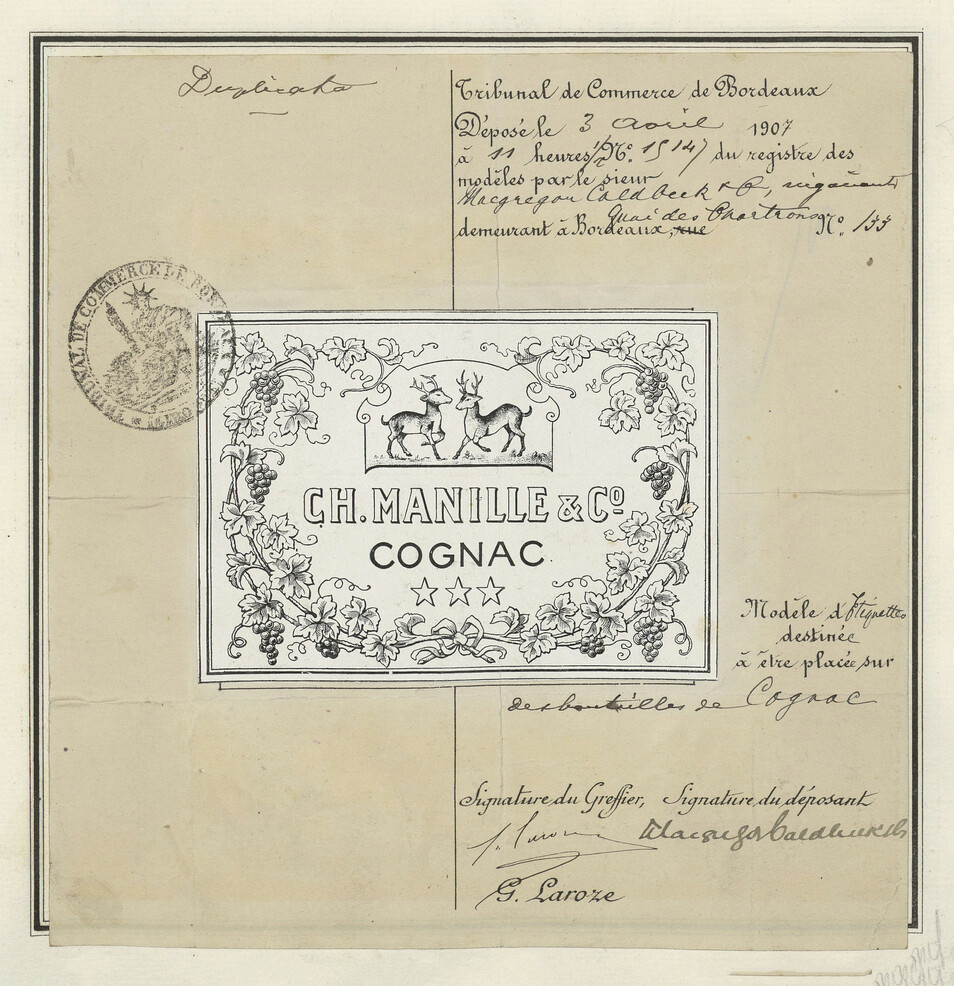 Duplicata
Tribunal de Commerce de Bordeaux
Déposé le 3 avril 1907
à 11 heures 1/2 No. 15147 du registre des
modèles par le sieur
Macgregor Caldbeck & Co, négociants
quai des Chartrons
demeurant à Bordeaux, rue No. 155
TRIBUNAL DE COMMERCE DE BORDEAUX
CH. MANILLE & Co
COGNAC
Modèle d'Etiquettes
destinée
à être placée sur
des bouteilles de Cognac
Signature du Greffier, Signature du déposant
Macgregor Caldbeck
G. Laroze